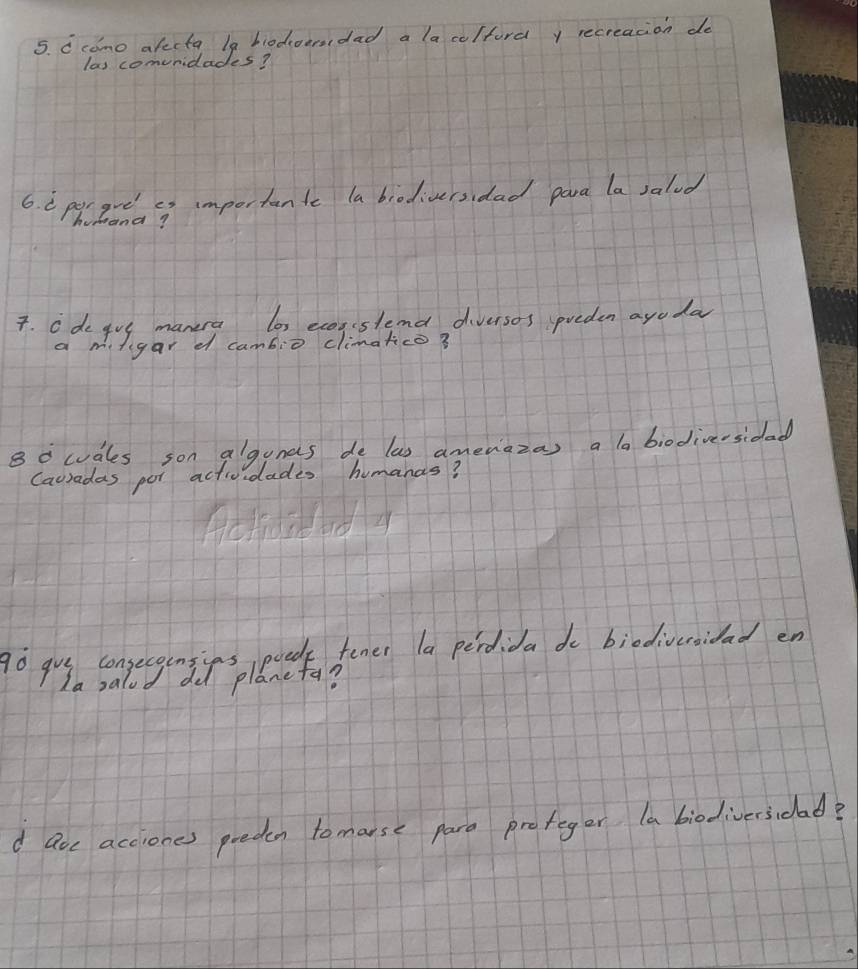 5. ¿cómo afecta la biodiversidad a la cultura y recreación de
las comunidades?
6. ¿porque' es importante la biodiversidad para la salud
humana?
7. ¿de que manera los ecosistema diversos pueden ayuda
a mitigar el cambio climatico?
8 ¿cuáles son algunas de las amenazas a la biodiversidad
causadas por actividades humanas?
Actividad 4
9 ¿que consecuensias puede tener la pérdida de biodiversidad en
la salud del planeta?
¿ Que acciones pueden tomarse para proteger la biodiversidad?